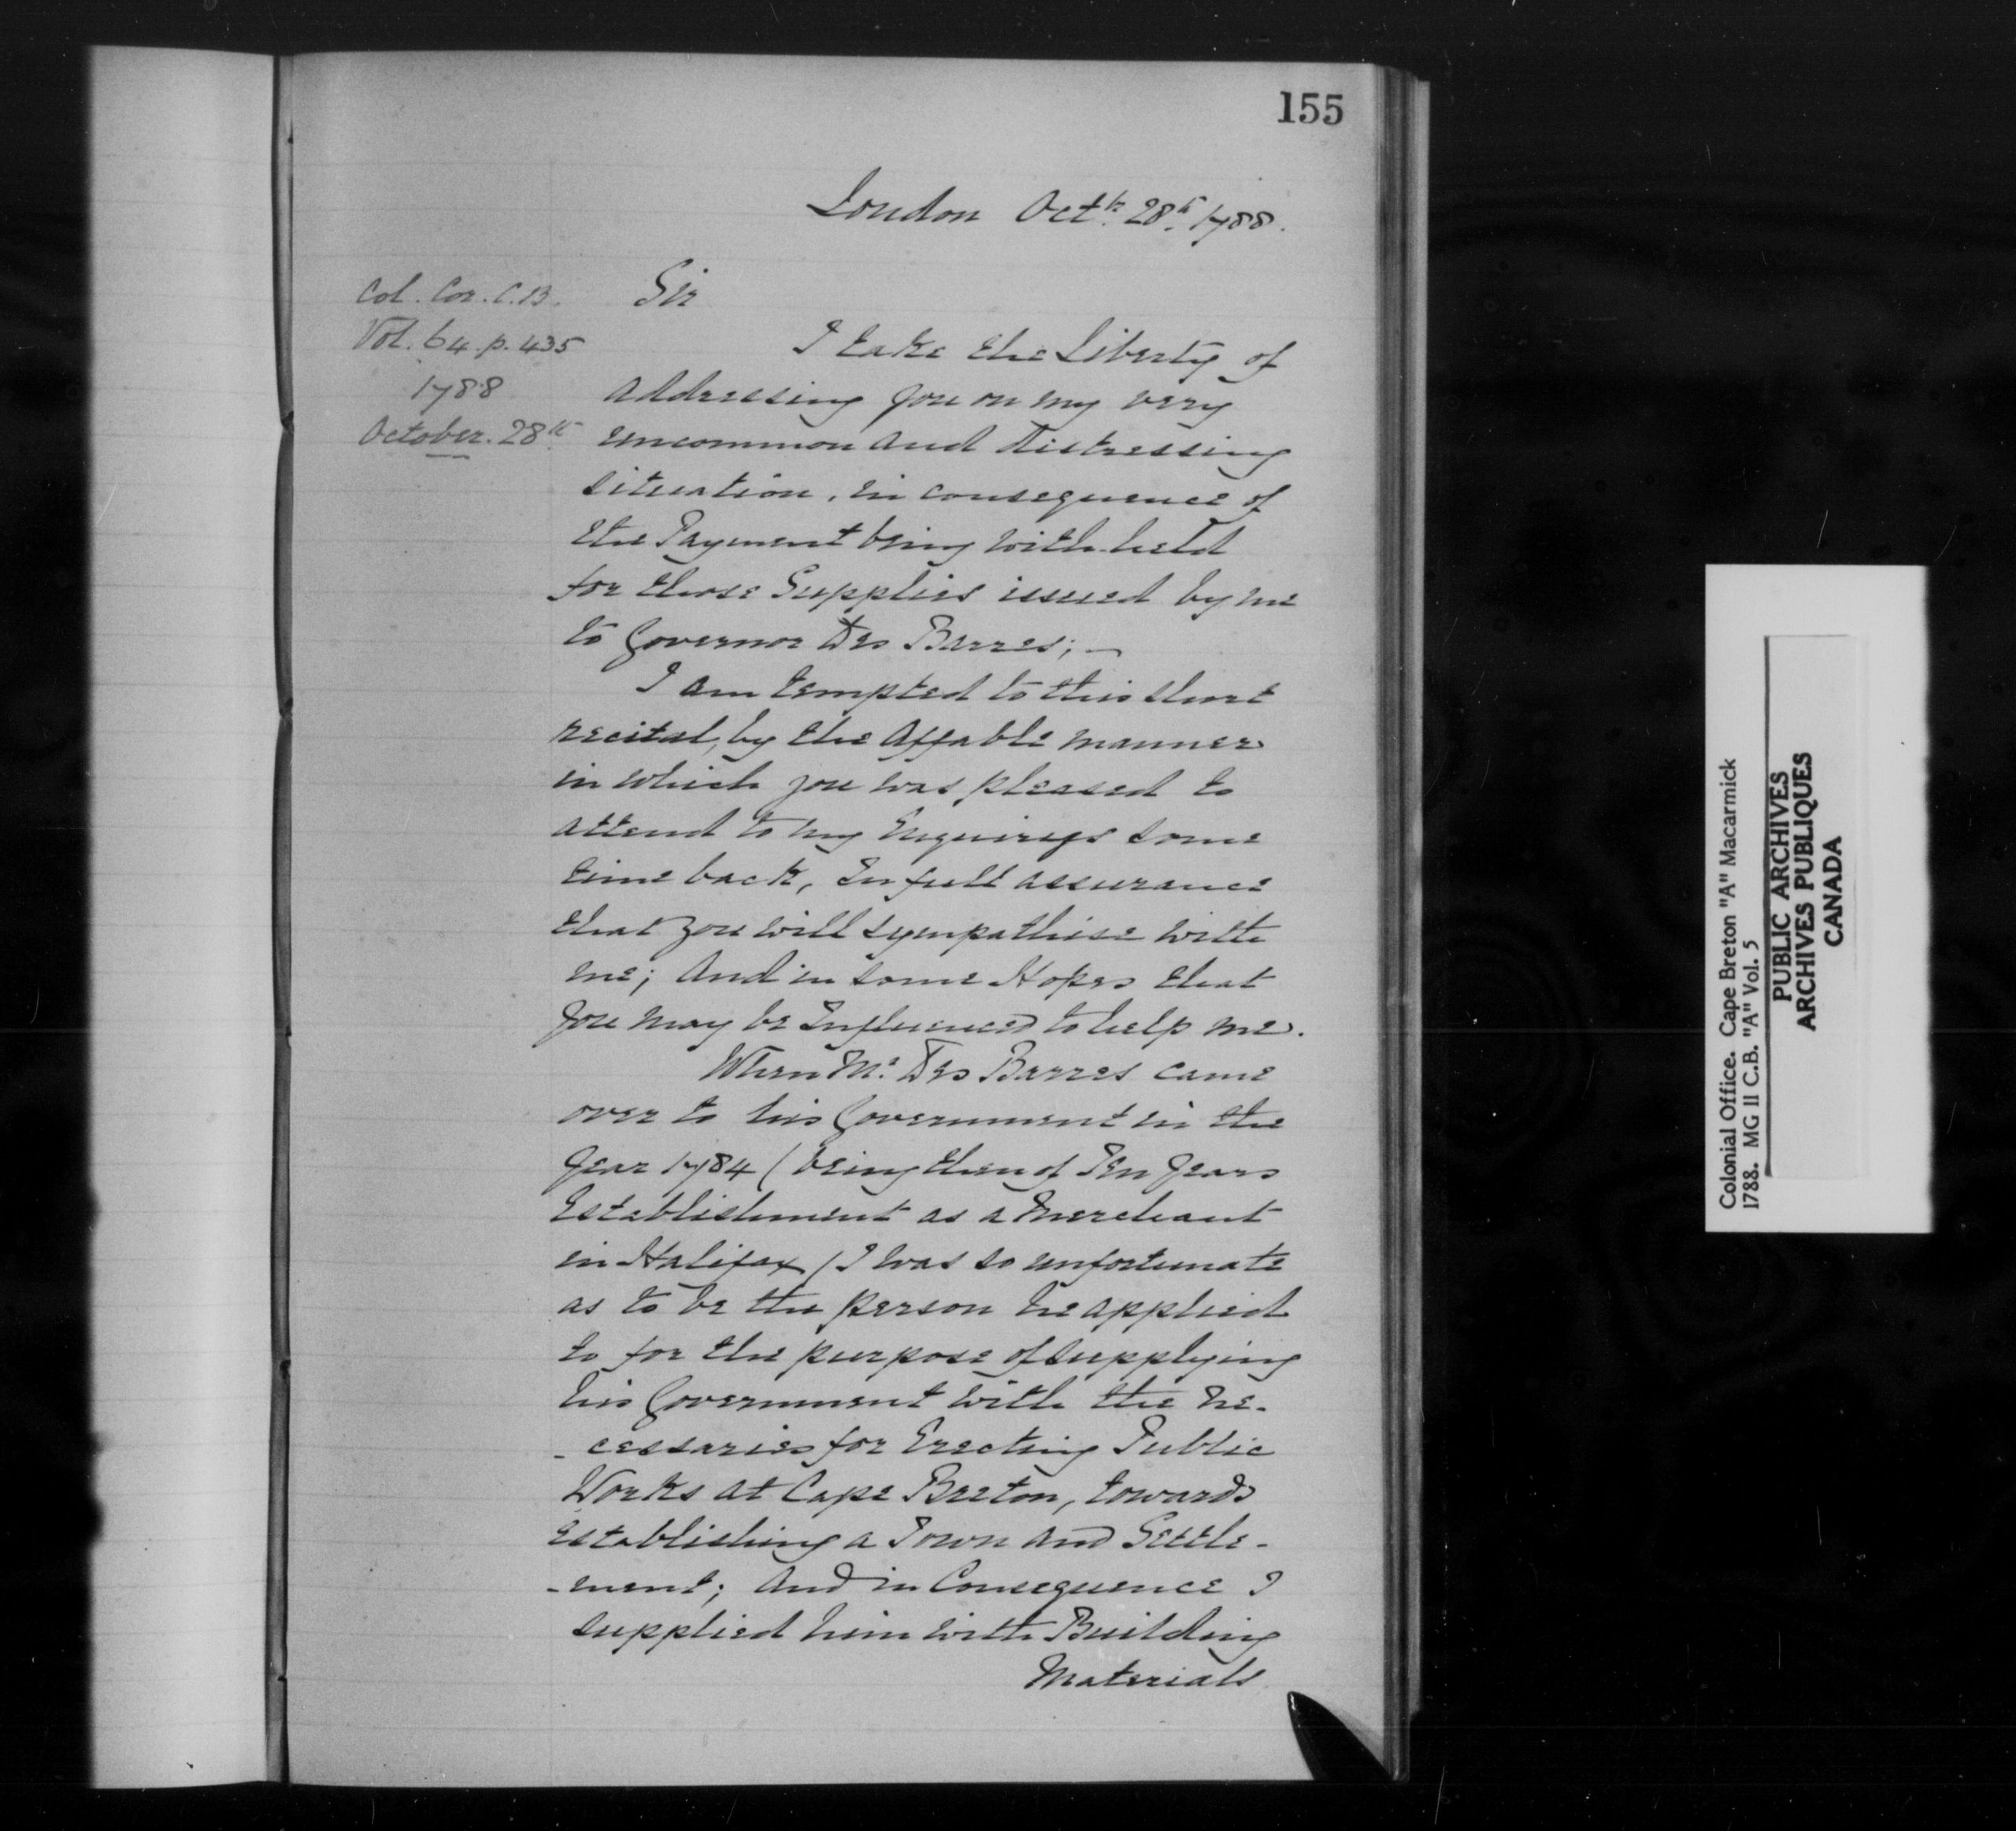 155
London Octbr. 28th. 1788.
Col. Cor. C.B.
Vol. 64. p. 435
1788
October. 28th.
Sir
I take the Liberty of
addressing you on my very
uncommon and distressing
situation, in consequence of
the Payment being with-held
for those Supplies issued by me
to Governor Des Barres; —
I am tempted to this short
recital, by the affable manner
in which you was pleased to
attend to my Enquirys some
time back, In full assurance
that you will sympathise with
me; And in some Hopes that
you may be Influenced to help me.
When Mr. Des Barres came
over to his Government in the
year 1784 (being then of Ten years
Establishment as a Merchant
in Halifax) I was so unfortunate
as to be the person he applied
to for the purpose of supplying
his Government with the Ne-
-cessaries for Erecting Public
Works at Cape Breton, towards
establishing a Town and Settle-
-ment; And in Consequence I
supplied him with Building
Materials
Colonial Office. Cape Breton "A" Macarmick
1788. MG 11 C.B. "A" Vol. 5
PUBLIC ARCHIVES
ARCHIVES PUBLIQUES
CANADA